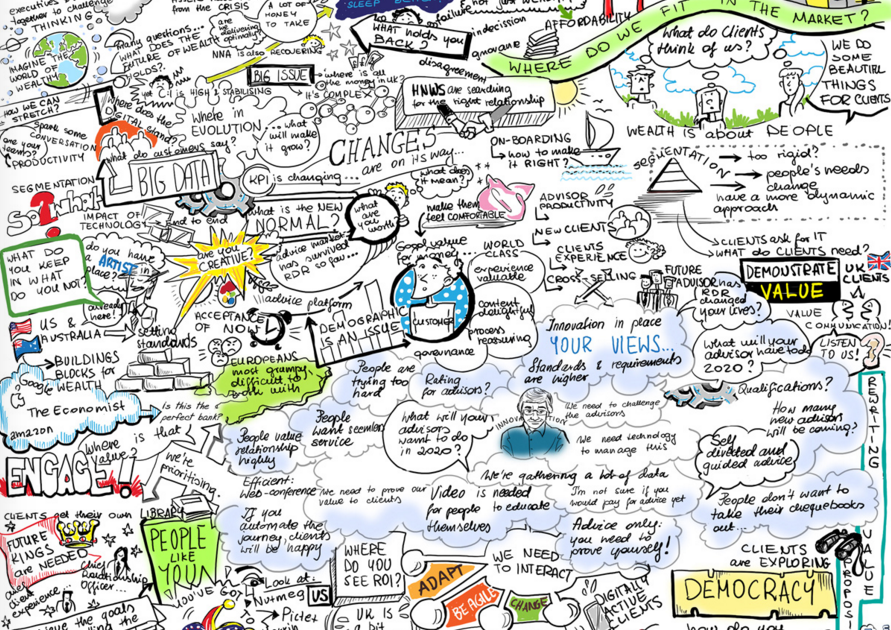 executives b
together to challenge
THINKING
from the CRISIS
are
delivering
optimally?
A LOT OF
MONEY
TO TAKE
"SLEEP
failure
not just
indecission
ignorance
AFFORDABILITY
WHERE DO WE FIT IN THE MARKET?
What do Clients
think of us?
WE DO
SOME
BEAUTIFUL
THINGS
FOR CLIENTS
IMAGINE THE
WORLD OF
WEALTH
Many questions...
WHAT DOES THE
FUTURE OF WEALTH
HOLDS?
NNA is also RECOVERING
What holds you
BACK?
disagreement
BIG ISSUE
where is all
the money in UK?
It's COMPLEX
yet it is HIGH & STABILISING
HNWS are searching
for the right relationship
HOW WE CAN
STRETCH?
Where does the
DIGITAL stance?
Where in
EVOLUTION
... what
will make
it grow?
Spark some
CONVERSATION
are your
teams?
PRODUCTIVITY
what do customers say?
CHANGES
are on its way...
ON-BOARDING
how to make
it RIGHT?
WEALTH IS about PEOPLE
SEGMENTATION
too rigid?
people's needs
change
have a more dynamic
approach
BIG DATA
KPI is changing...
what does
it mean?
make them
feel COMFORTABLE
ADVISOR
PRODUCTIVITY
NEW CLIENTS
CLIENTS
EXPERIENCE
CROSS-SELLING
SEGMENTATION
So What?
IMPACT OF
TECHNOLOGY
end to end
What is the NEW
NORMAL?
what
are you
worth
CLIENTS ask for IT
WHAT do CLIENTS need?
WHAT DO
YOU KEEP
IN WHAT
DO YOU NOT?
do you have
a ARTIST in
place?
already
here!
are you
CREATIVE?
advice market
has survived
RDR so far...
Good value
for money
WORLD
CLASS
experience
valuable
content
delightful
process
reassuring
CUSTOMER
governance
FUTURE
ADVISOR
has
RDR
changed
your lives?
DEMONSTRATE
VALUE
UK
CLIENTS
VALUE
COMMUNICATION
LISTEN
TO US!
US &
AUSTRALIA
setting
standards
ACCEPTANCE
OF NOW
advice platform
DEMOGRAPHIC
IS AN ISSUE
Innovation in place
YOUR VIEWS...
Standards & requirements
are higher
What will your
advisor have to do
2020?
BUILDINGS
BLOCKS for
WEALTH
EUROPEANS
most grumpy,
difficult to
work with
People are
trying too
hard
Rating
for advisors?
Qualifications?
The Economist
amazon
Is this the
perfect bank?
People value
relationship
highly
People
want seemless
service
What will your
advisors
want to do
in 2020?
INNOVATION
We need to challenge
the advisors
We need technology
to manage this
How many
new advisors
will be coming?
REWRITING
VALUE
PROPOSI
Where is that
value?
ENGAGE!
We're
prioritising.
Efficient:
Web-conference
If you
automate the
journey, clients
will be happy
We need to prove our
value to clients
We're gathering a lot of data
Video is needed
for people to educate
themselves
I'm not sure if you
would pay for advice yet
Advice only:
you need to
prove yourself!
Self
divected and
guided advice
People don't want to
take their chequebooks
out...
CLIENTS get their own
FUTURE
KINGS
are NEEDED
client
experience
Chief
Relationship
Officer...
LIBRARY
PEOPLE
LIKE
YOU
YOU'VE GOT
Look at:
Nutmeg
US
Pictet
WHERE
DO YOU
SEE ROI?
UK IS
a bit
ADAPT
BE AGILE
CHANGE
WE NEED
TO INTERACT
DIGITALLY
ACTIVE
CLIENTS
CLIENTS
are EXPLORING
DEMOCRACY
how do you
have the goals